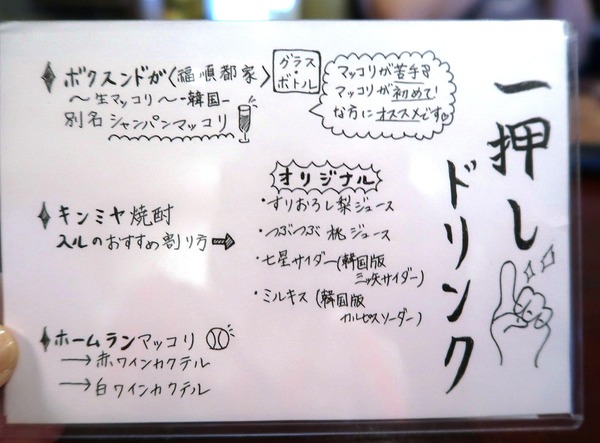 一押し
ドリンク
ボクスンドガ〈福順都家〉
グラス・
ボトル
〜生マッコリ〜 -韓国-
別名 シャンパンマッコリ
マッコリが苦手!?
マッコリが初めて!
な方にオススメです♡
キンミヤ焼酎
入ルのおすすめ割り方
オリジナル
・すりおろし梨ジュース
・つぶつぶ 桃ジュース
・七星サイダー(韓国版
三ッ矢サイダー)
・ミルキス (韓国版
カルピスソーダー)
ホームランマッコリ
→赤ワインカクテル
→白ワインカクテル